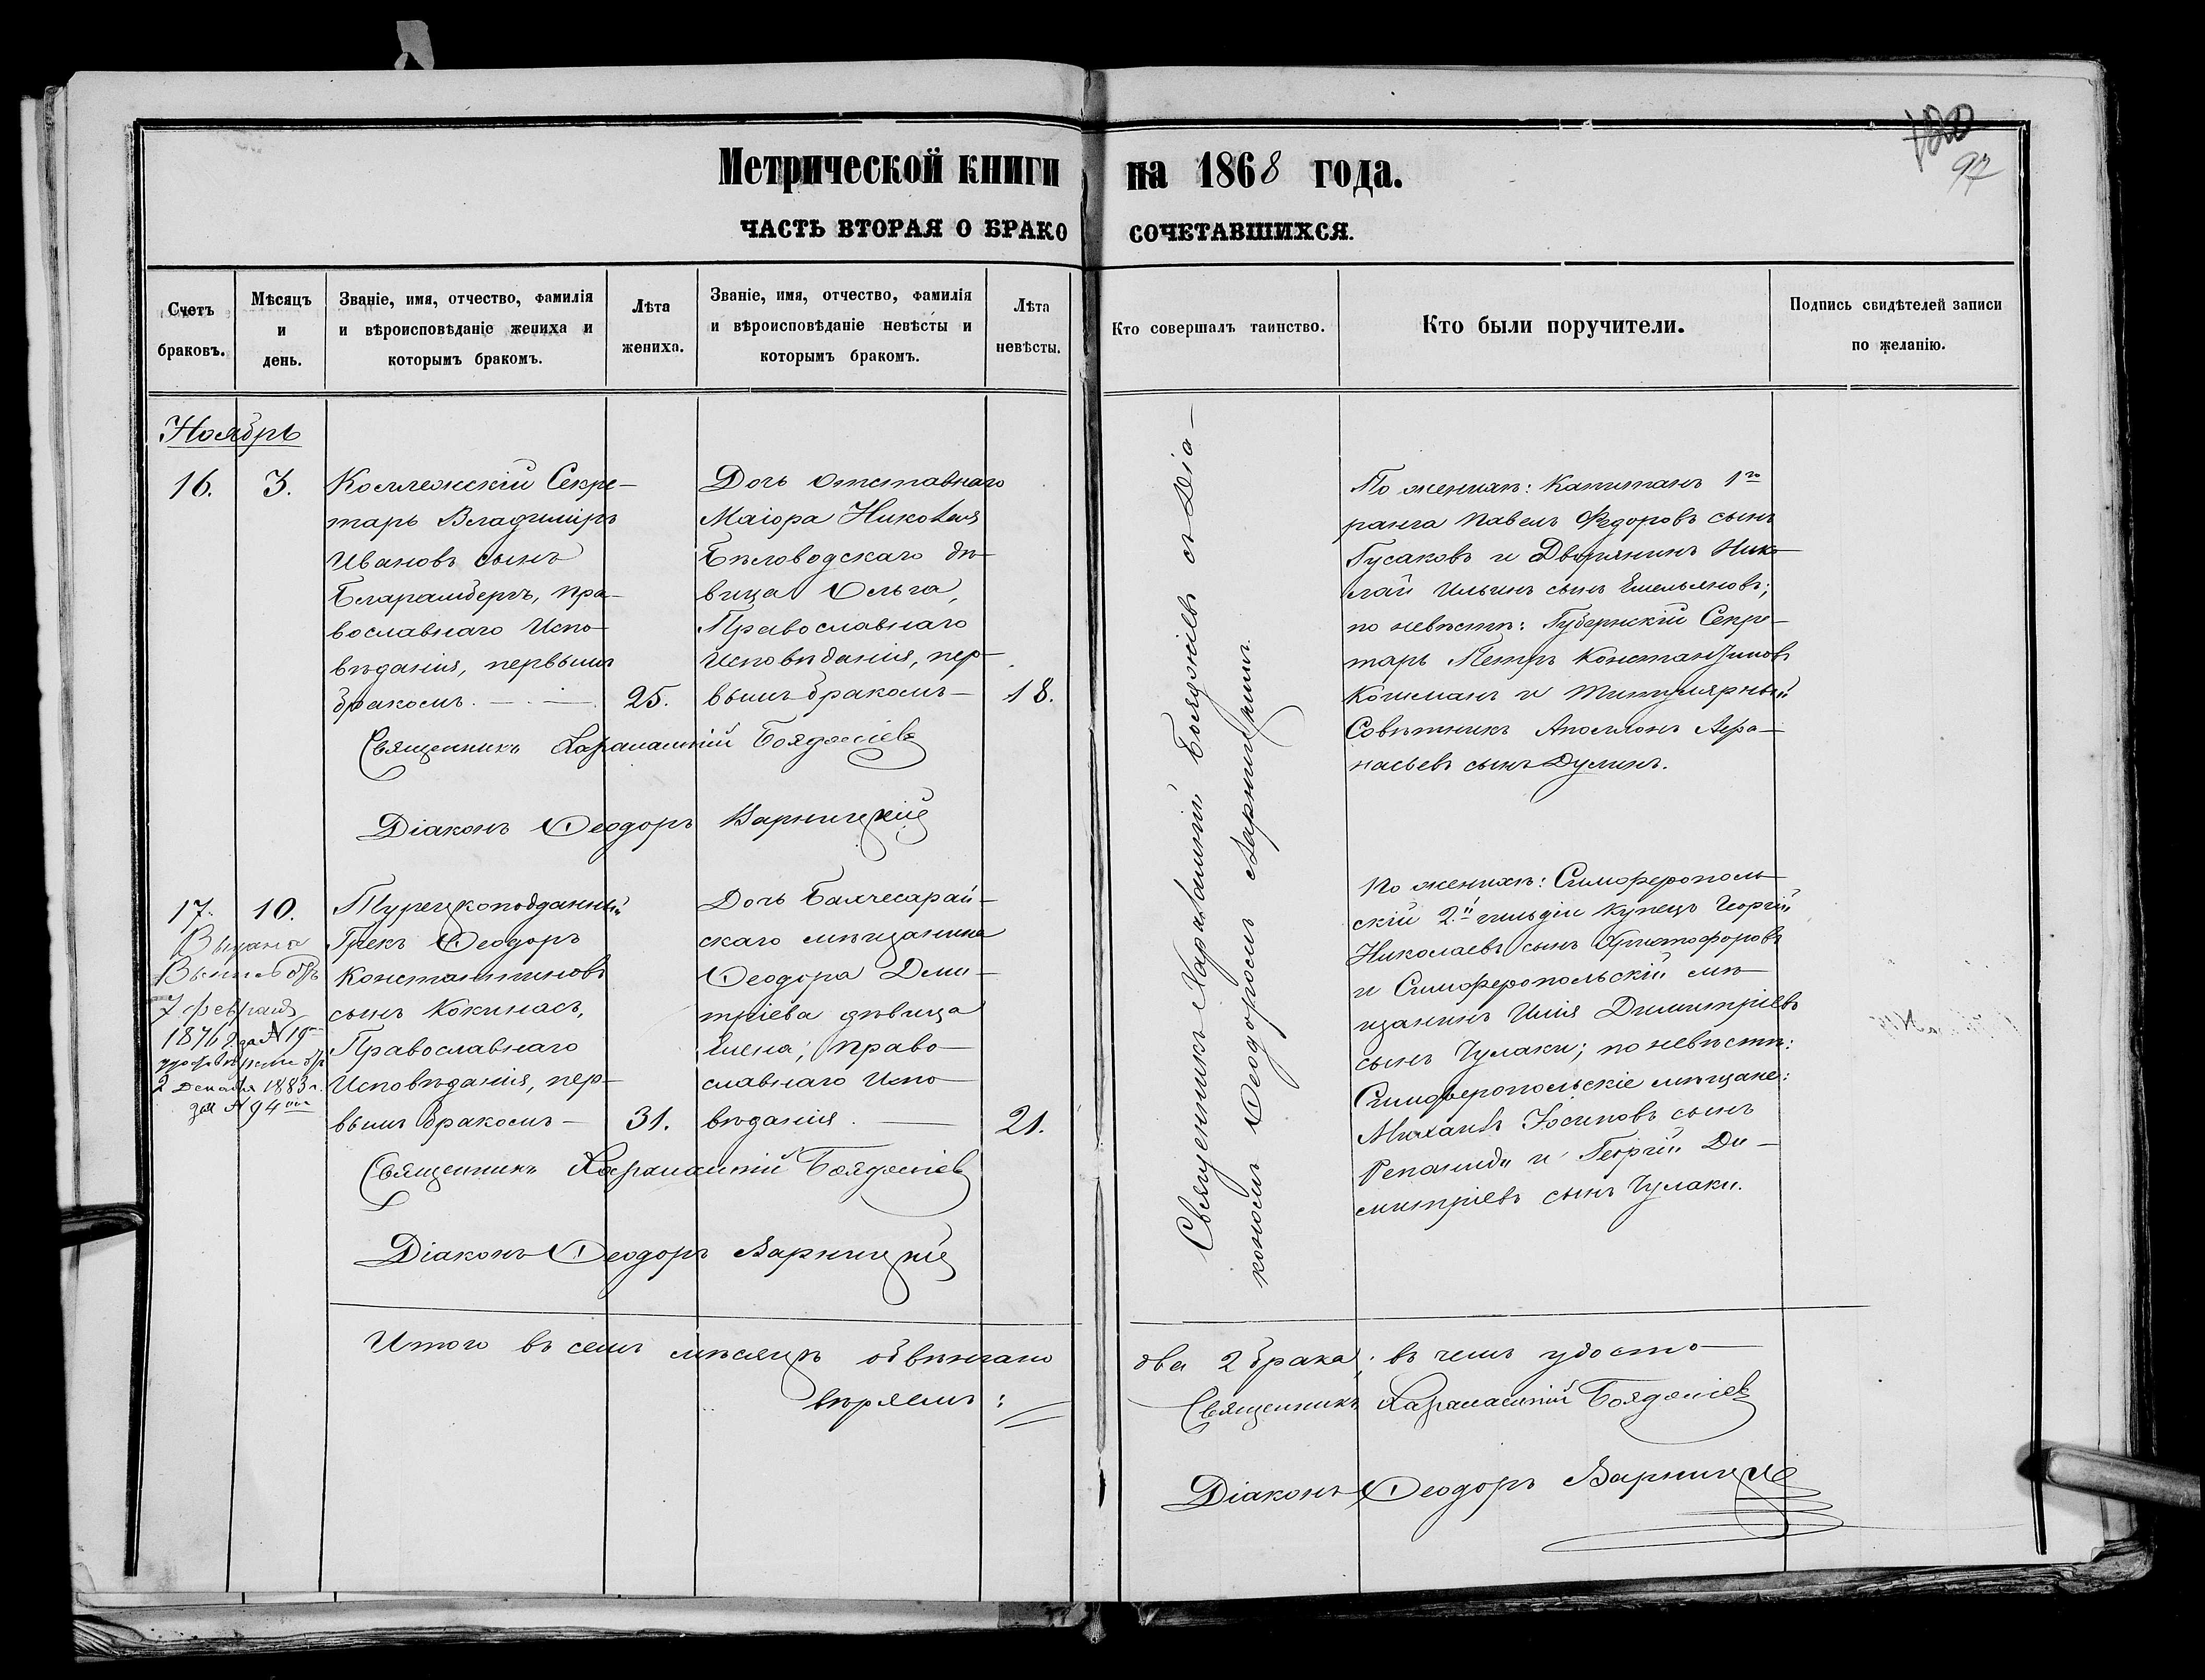 120
97
Метрической книги на 1868 года.
ЧАСТЬ ВТОРАЯ О БРАКОСОЧЕТАВШИХСЯ.
Счетъ браковъ.
Мѣсяцъ и день.
Званіе, имя, отчество, фамилія и вѣроисповѣданіе жениха и которымъ бракомъ.
Лѣта жениха.
Званіе, имя, отчество, фамилія и вѣроисповѣданіе невѣсты и которымъ бракомъ.
Лѣта невѣсты.
Кто совершалъ таинство.
Кто были поручители.
Подпись свидѣтелей записи по желанію.
Ноябрь
16. 3.
Коллежскій Секре-
тарь Владиміръ
Ивановъ сынъ
Бларамбергъ, пра-
вославнаго Испо-
вѣданія, первымъ
бракомъ. 25.
Дочь отставнаго
Маіора Николая
Бѣловодскаго дѣ-
вица Ольга,
Православнаго
Исповѣданія, пер-
вымъ бракомъ 18.
Священникъ Харалампій Бояджіевъ
Діаконъ Ѳеодоръ Варницкій
Священникъ Харалампій Бояджіевъ съ Діа-
кономъ Ѳеодоромъ Варницкимъ.
По женихѣ: Капитанъ 1го
ранга Павелъ Федоровъ сынъ
Гусаковъ и Дворянинъ Нико-
лай Ильинъ сынъ Емельяновъ;
по невѣстѣ: Губернскій Секре-
тарь Петръ Константиновъ
Кошманъ и Титулярный
Совѣтникъ Аполлонъ Афа-
насьевъ сынъ Дулинъ.
17. 10.
Выдана
Выпись бр.
7 февраля
1876 г. за № 19
2 Декабря 1883 г.
за № 94
Турецкоподданный
Грекъ Ѳеодоръ
Константиновъ
сынъ Кокинасъ,
Православнаго
Исповѣданія, пер-
вымъ бракомъ 31.
Дочь Бахчесарай-
скаго мѣщанина
Ѳеодора Дми-
тріева дѣвица
Елена, право-
славнаго Испо-
вѣданія. 21.
Священникъ Харалампій Бояджіевъ
Діаконъ Ѳеодоръ Варницкій
По женихѣ: Симферополь-
скій 2й гильдіи купецъ Георгій
Николаевъ сынъ Христофоровъ
и Симферопольскій мѣ-
щанинъ Илія Димитріевъ
сынъ Чулаки; по невѣстѣ:
Симферопольскіе мѣщане:
Михаилъ Іосиповъ сынъ
и Георгій Ди-
митріевъ сынъ Чулаки.
Итого въ семъ мѣсяцѣ обвѣнчано два 2 брака, въ чемъ удосто-
вѣряемъ:
Священникъ Харалампій Бояджіевъ
Діаконъ Ѳеодоръ Варницкій